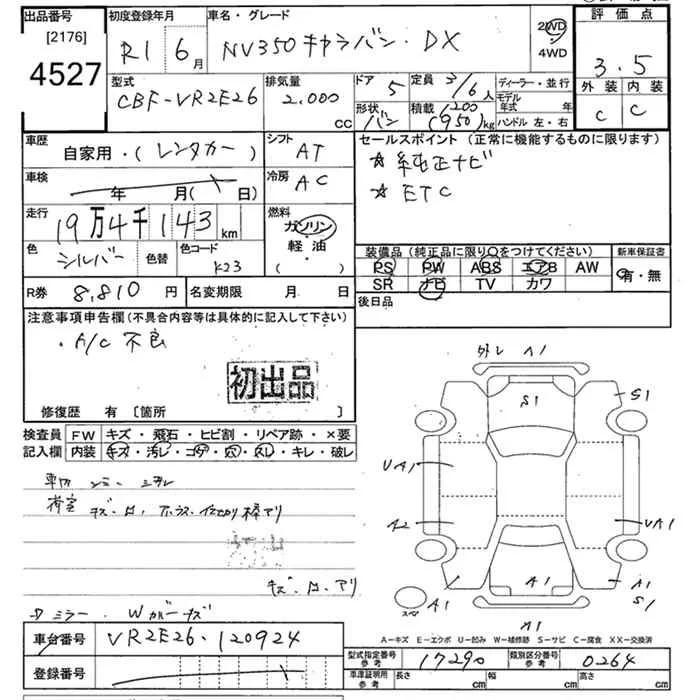 出品番号 初度登録年月 車名・グレード 評価点
[2176]
4527
R1 6月 NV350 キャラバン・DX 2WD・4WD 3.5
型式 排気量 ドア 定員 ディーラー・並行 外装 内装
CBF-VR2E26 2.000 CC 5 3/6人 モデル年式 年 C C
形状 積載 ハンドル 左・右
バン 1200 (950)kg
車歴 自家用・(レンタカー) シフト AT セールスポイント (正常に機能するものに限ります)
☆ 純正ナビ
車検 年 月(日) 冷房 AC
☆ ETC
走行 19万4千143km 燃料 ガソリン・軽油 ( )
色 シルバー 色替 色コード K23
装備品 (純正品に限り○をつけてください) 新車保証書
PS PW ABS エアB AW 有・無
SR ナビ TV カワ
R券 8,810円 名変期限 月 日 後日品
注意事項申告欄(不具合内容等は具体的に記入して下さい)
・A/C 不良
初出品
修復歴 有 〔箇所 〕
検査員記入欄 FW キズ・飛石・ヒビ割・リペア跡・×要
内装 キズ・汚レ・コゲ・穴・スレ・キレ・破レ
荷室 キズ・
キズ・ アリ
ミラー W
外レ A1
S1 S1
UA1
A2 UA1
A1 A1 A1
S1
A1
A-キズ E-エクボ U-凹み W-補修跡 S-サビ C-腐食 XX-交換済
車台番号 VR2E26-120924
型式指定番号 参考 17290 類別区分番号 参考 0264
登録番号
車庫証明用 参考 長さ cm 幅 cm 高さ cm